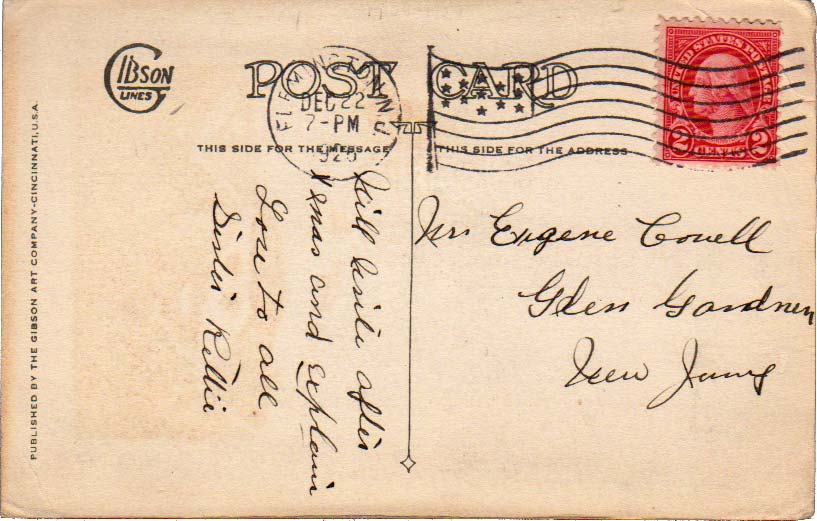 GIBSON
LINES
POST CARD
FLEMINGTON
DEC 22
7-PM
N.J.
THIS SIDE FOR THE MESSAGE
THIS SIDE FOR THE ADDRESS
UNITED STATES POSTAGE
2 CENTS 2
PUBLISHED BY THE GIBSON ART COMPANY-CINCINNATI, U.S.A.
Will write after
Xmas and Explain
Love to all
Sister Nellie
Mrs Eugene Cowell
Glen Gardner
New Jersey